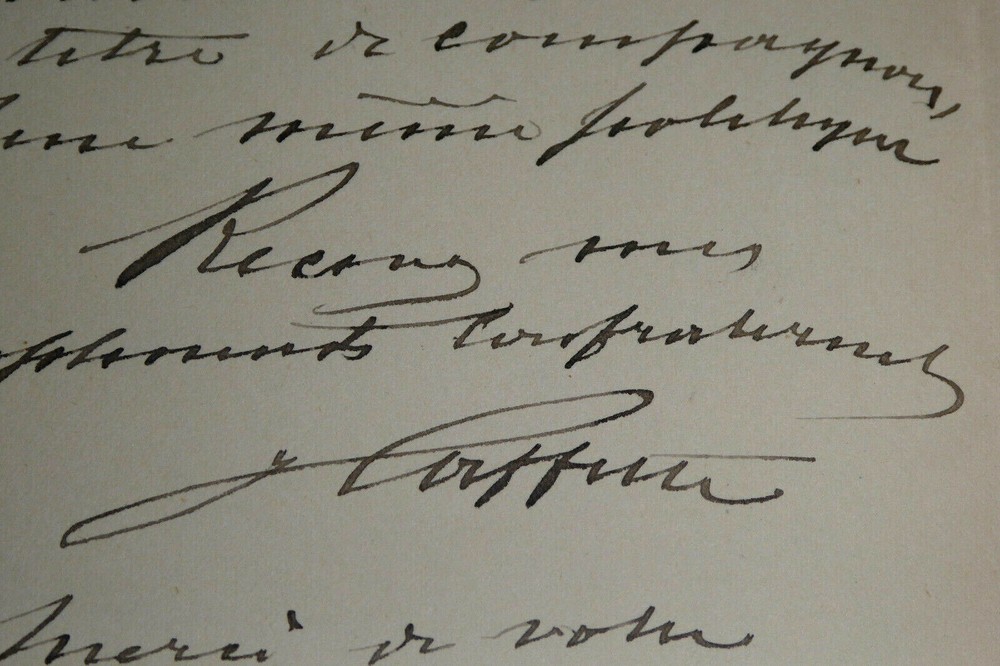 titre de compagnon,
même politique
Recevez mes
confraternels
J Caffin
Merci de votre